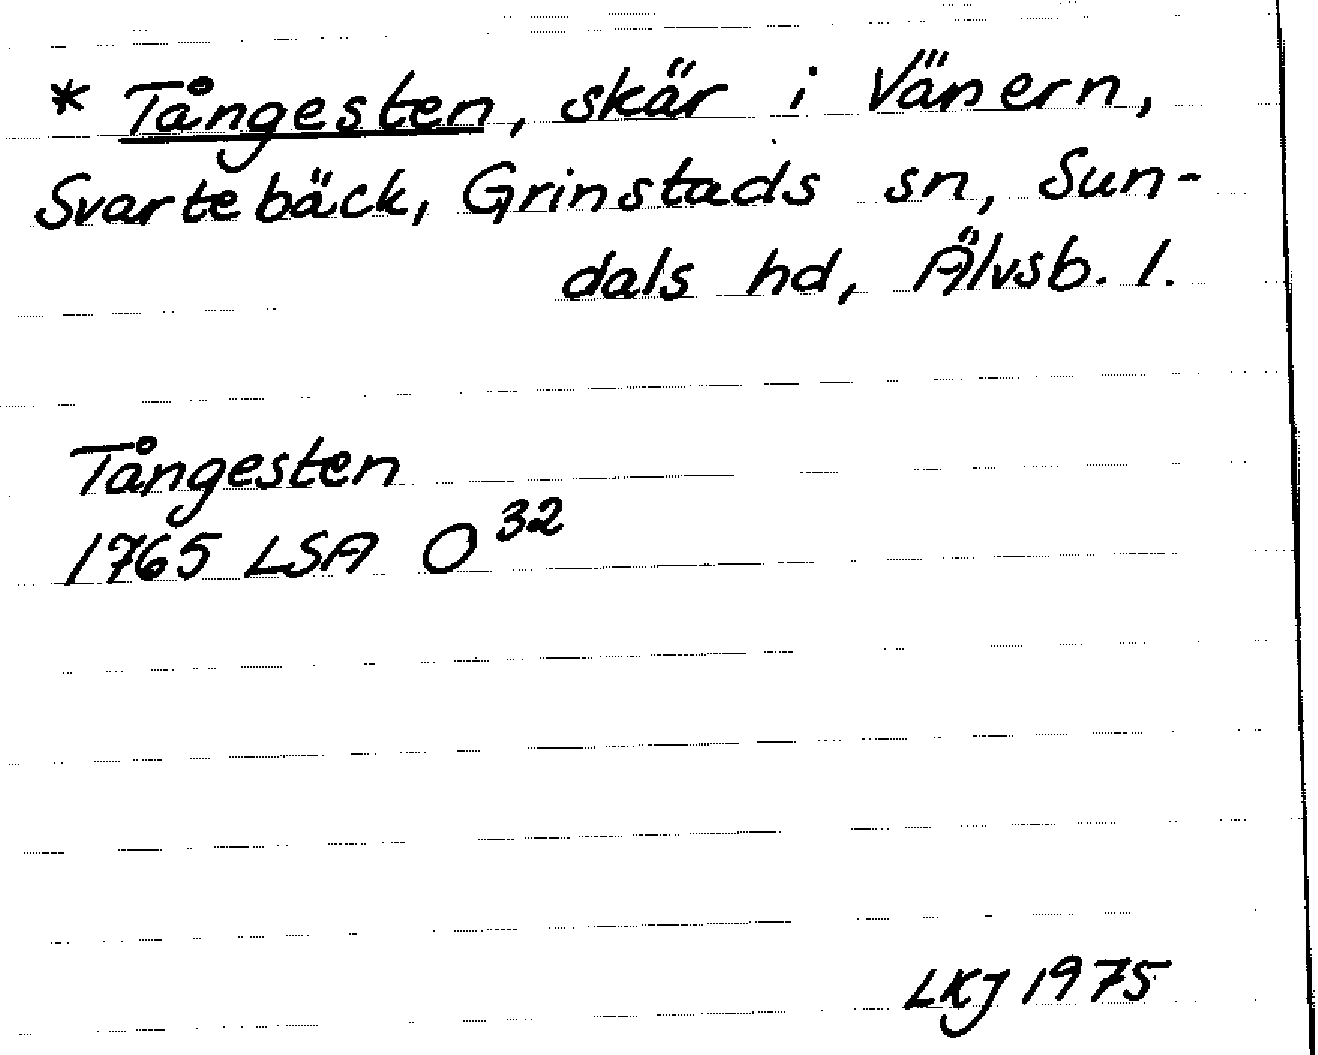 * Tångesten, skär i Vänern,
Svartebäck, Grinstads sn, Sun-
dals hd, Älvsb. l.
Tångesten
1765 LSA O 32
LKJ 1975